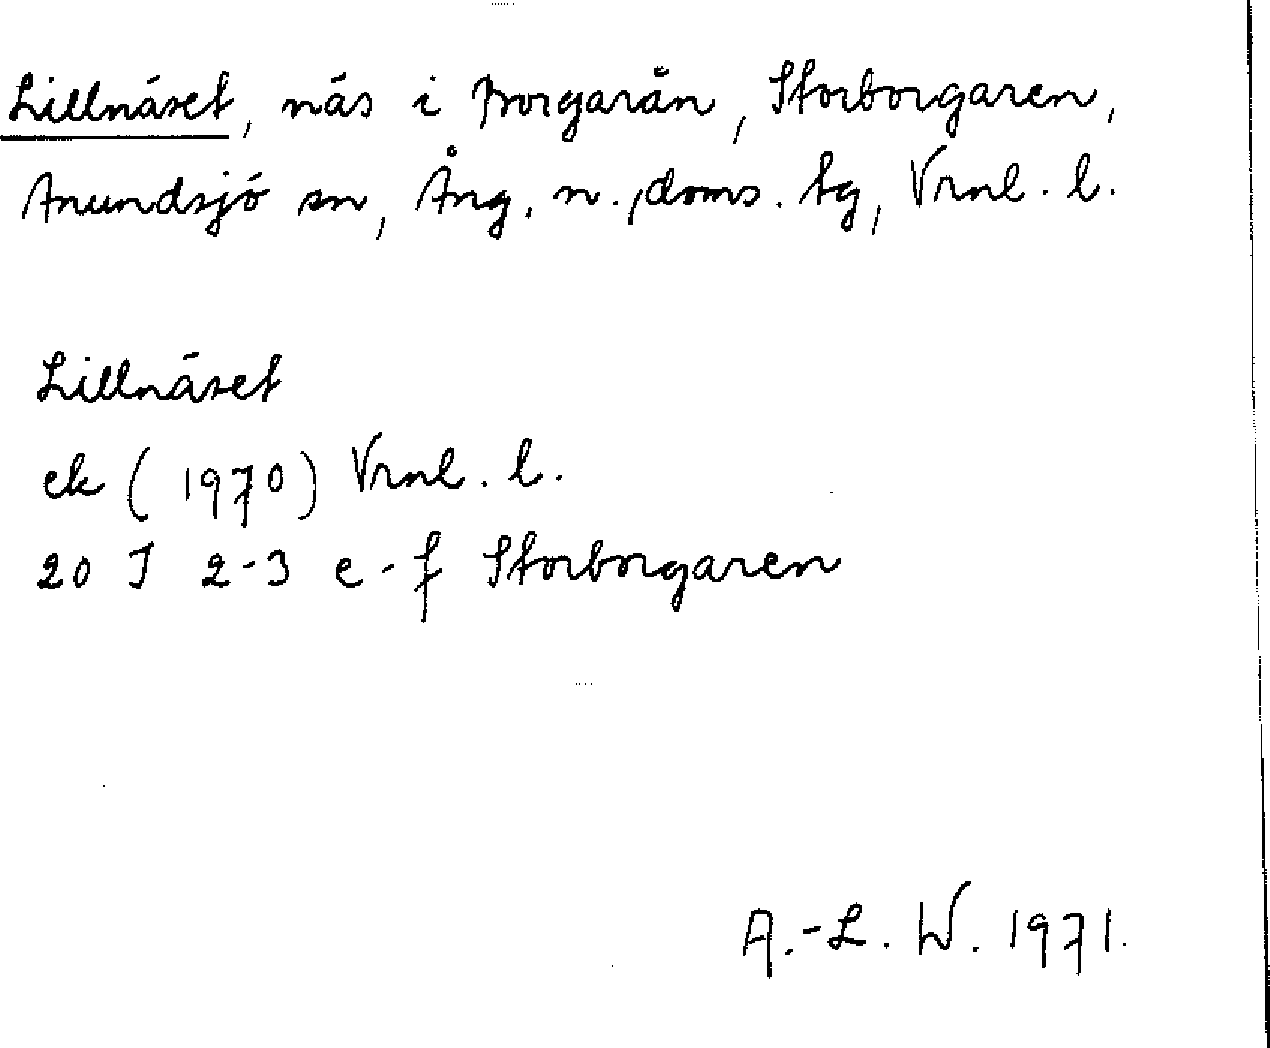 Lillnäset, näs i Borgarån, Storborgaren,
Anundsjö sn, Ång. n., doms. tg, Vrnl. l.
Lillnäset
ek (1970) Vrnl. l.
20 J 2-3 e-f Storborgaren
A.-L. W. 1971.